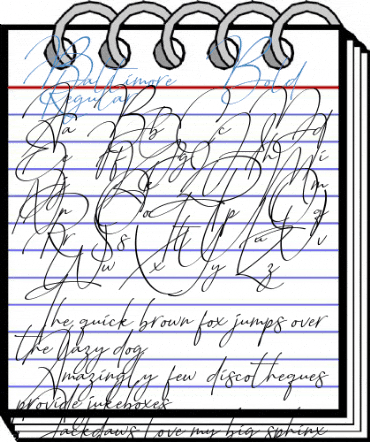 Baltimore Bold
Regular
Aa Bb Cc Dd
Ee Ff Gg Hh Ii
Jj Kk Ll Mm
Nn Oo Pp Qq
Rr Ss Tt Uu Vv
Ww Xx Yy Zz
The quick brown fox jumps over
the lazy dog
Amazingly few discotheques
provide jukeboxes
Jackdaws love my big sphinx